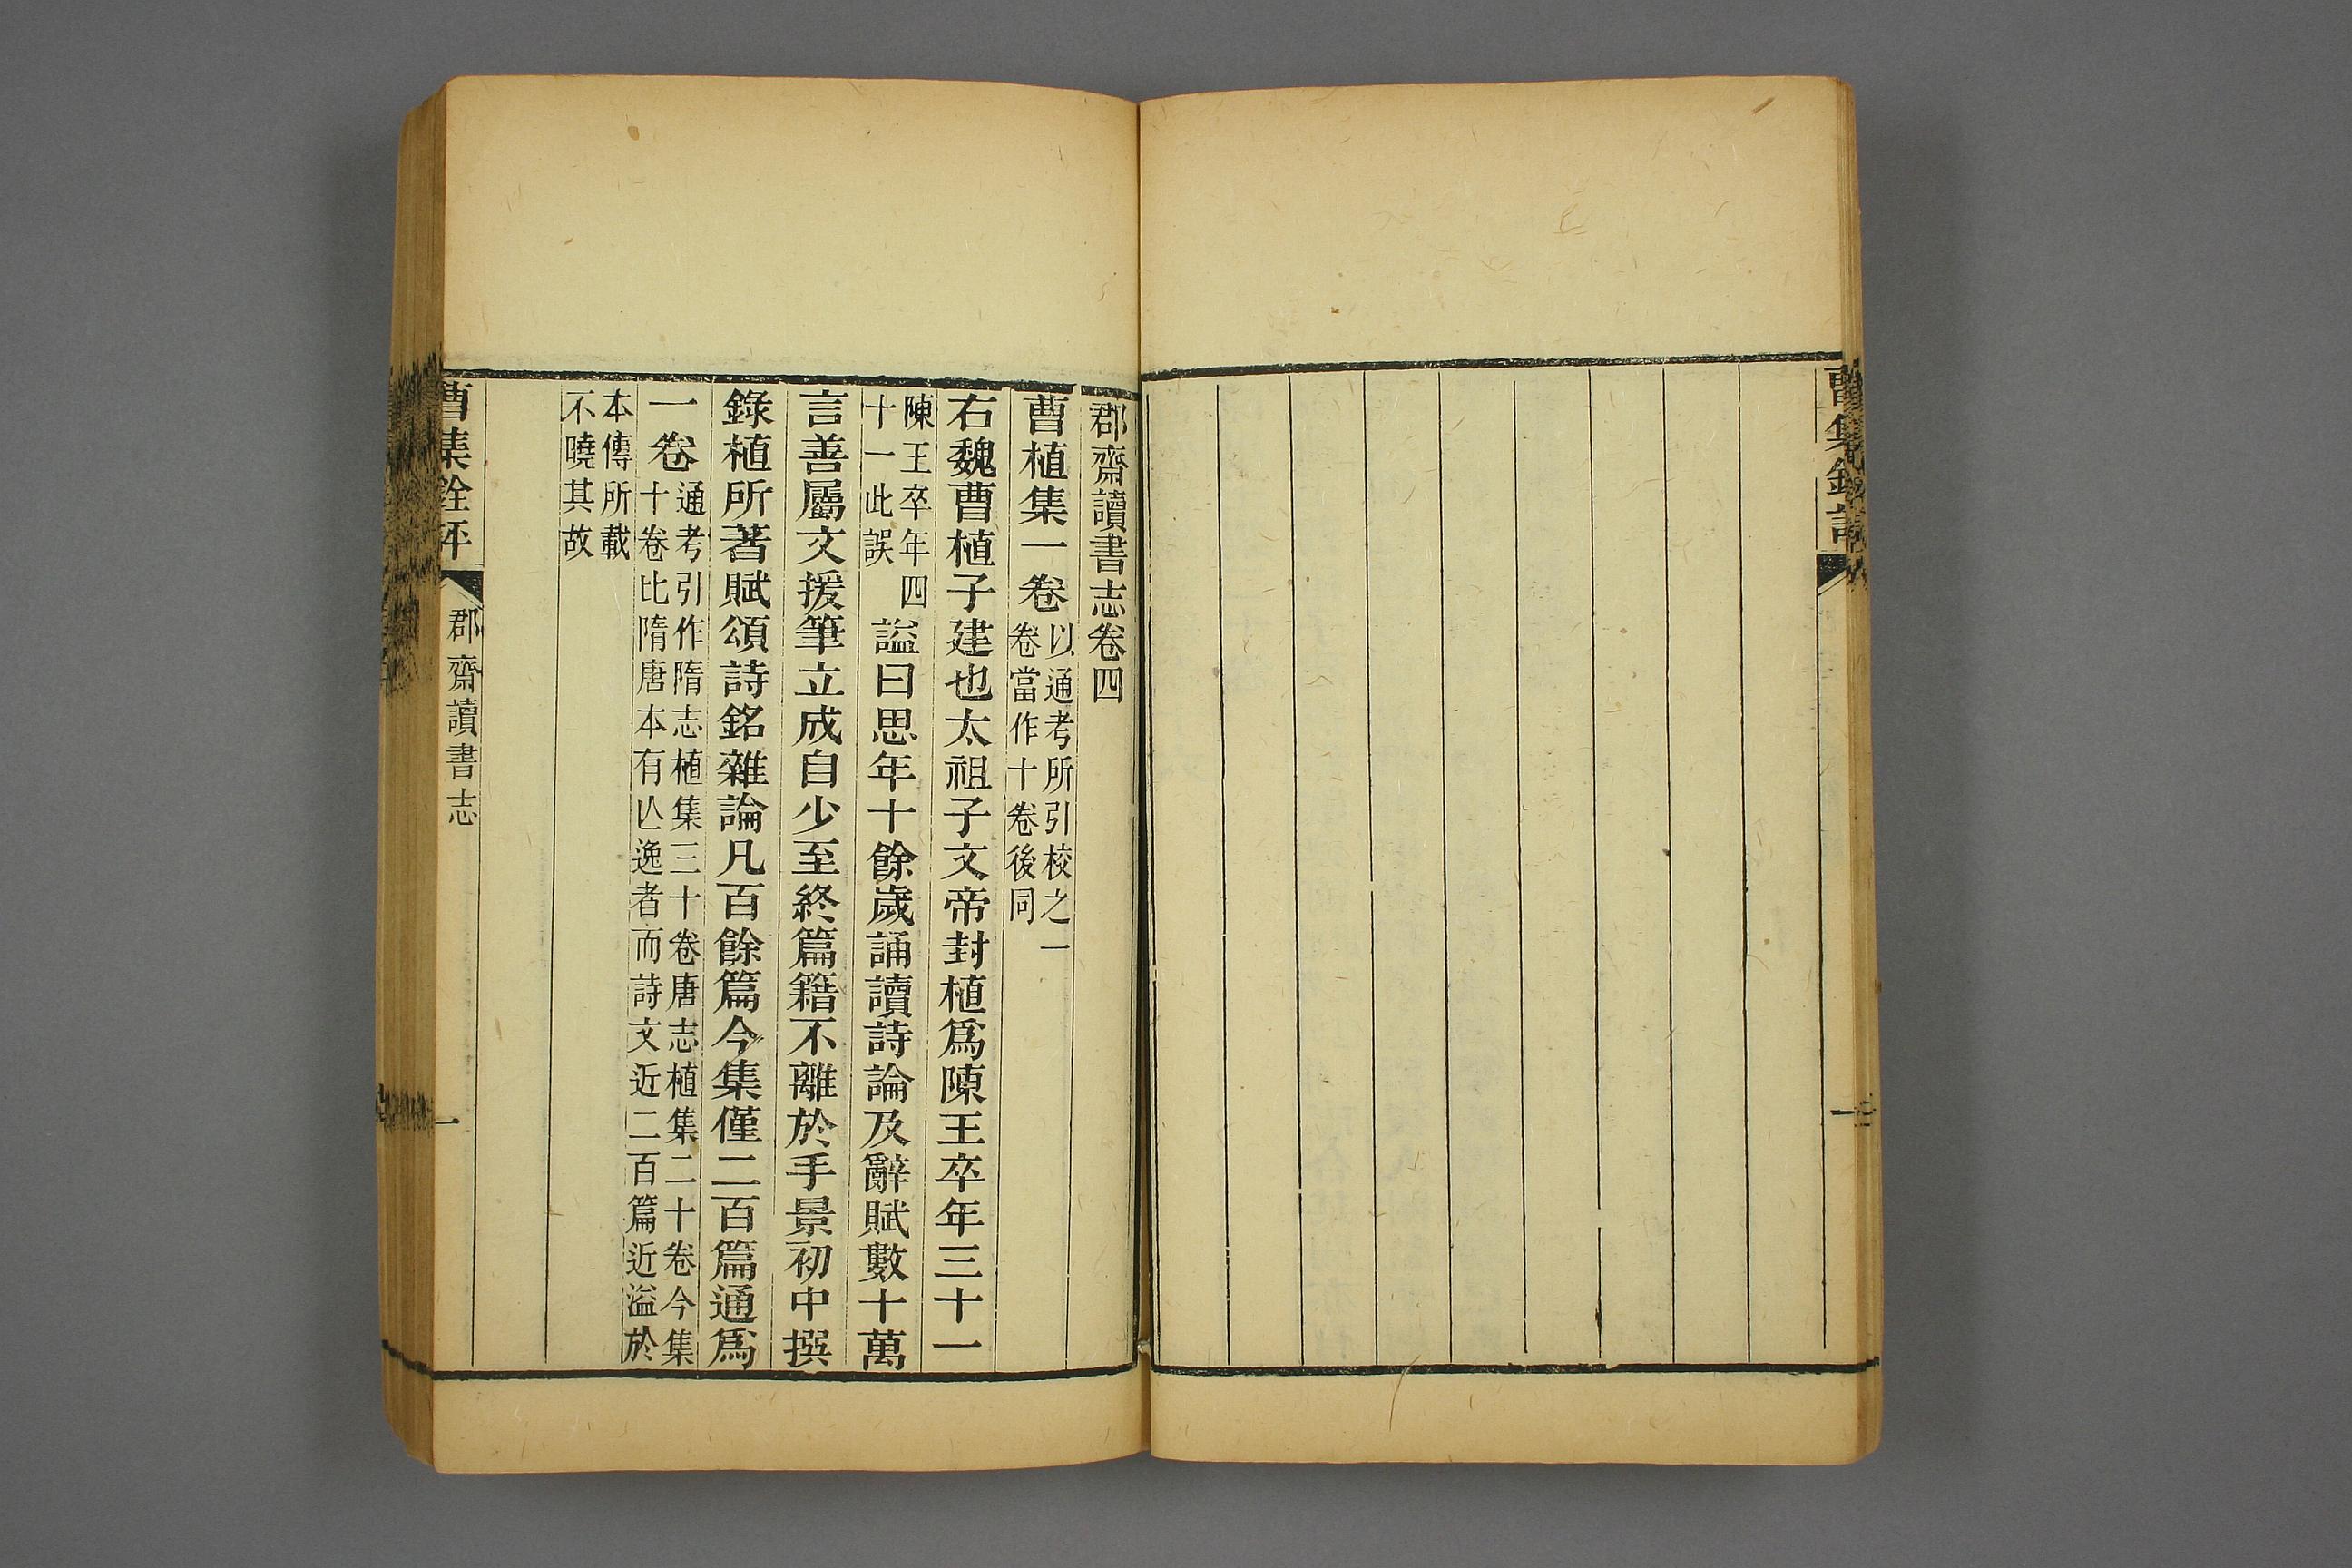 曹集銓評
三
郡齋讀書志卷四
曹植集一卷以通考所引校之一卷當作十卷後同
右魏曹植子建也太祖子文帝封植爲陳王卒年三十一
陳王卒年四十一此誤謚曰思年十餘歲誦讀詩論及辭賦數十萬
言善屬文援筆立成自少至終篇籍不離於手景初中撰
錄植所著賦頌詩銘雜論凡百餘篇今集僅二百篇通爲
一卷通考引作十卷隋志植集三十卷唐志植集二十卷今集比隋唐本有亾逸者而詩文近二百篇近溢於
本傳所載不曉其故
曹集銓評
郡齋讀書志
一